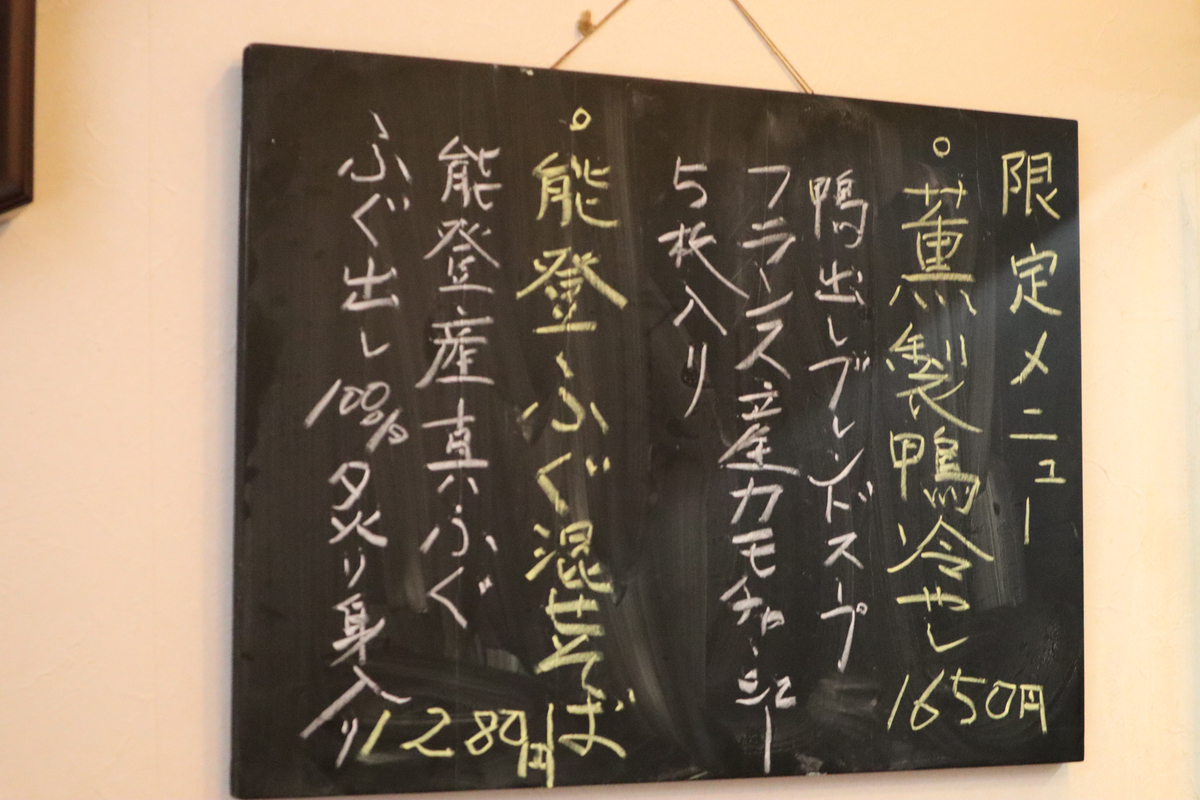 限定メニュー
○薫製鴨冷やし 1650円
鴨出しブレンドスープ
フランス産カモチャーシュー
5枚入り
○能登ふぐ混芸そば 1280円
能登産真ふぐ
ふぐ出し100% 炙り身入り